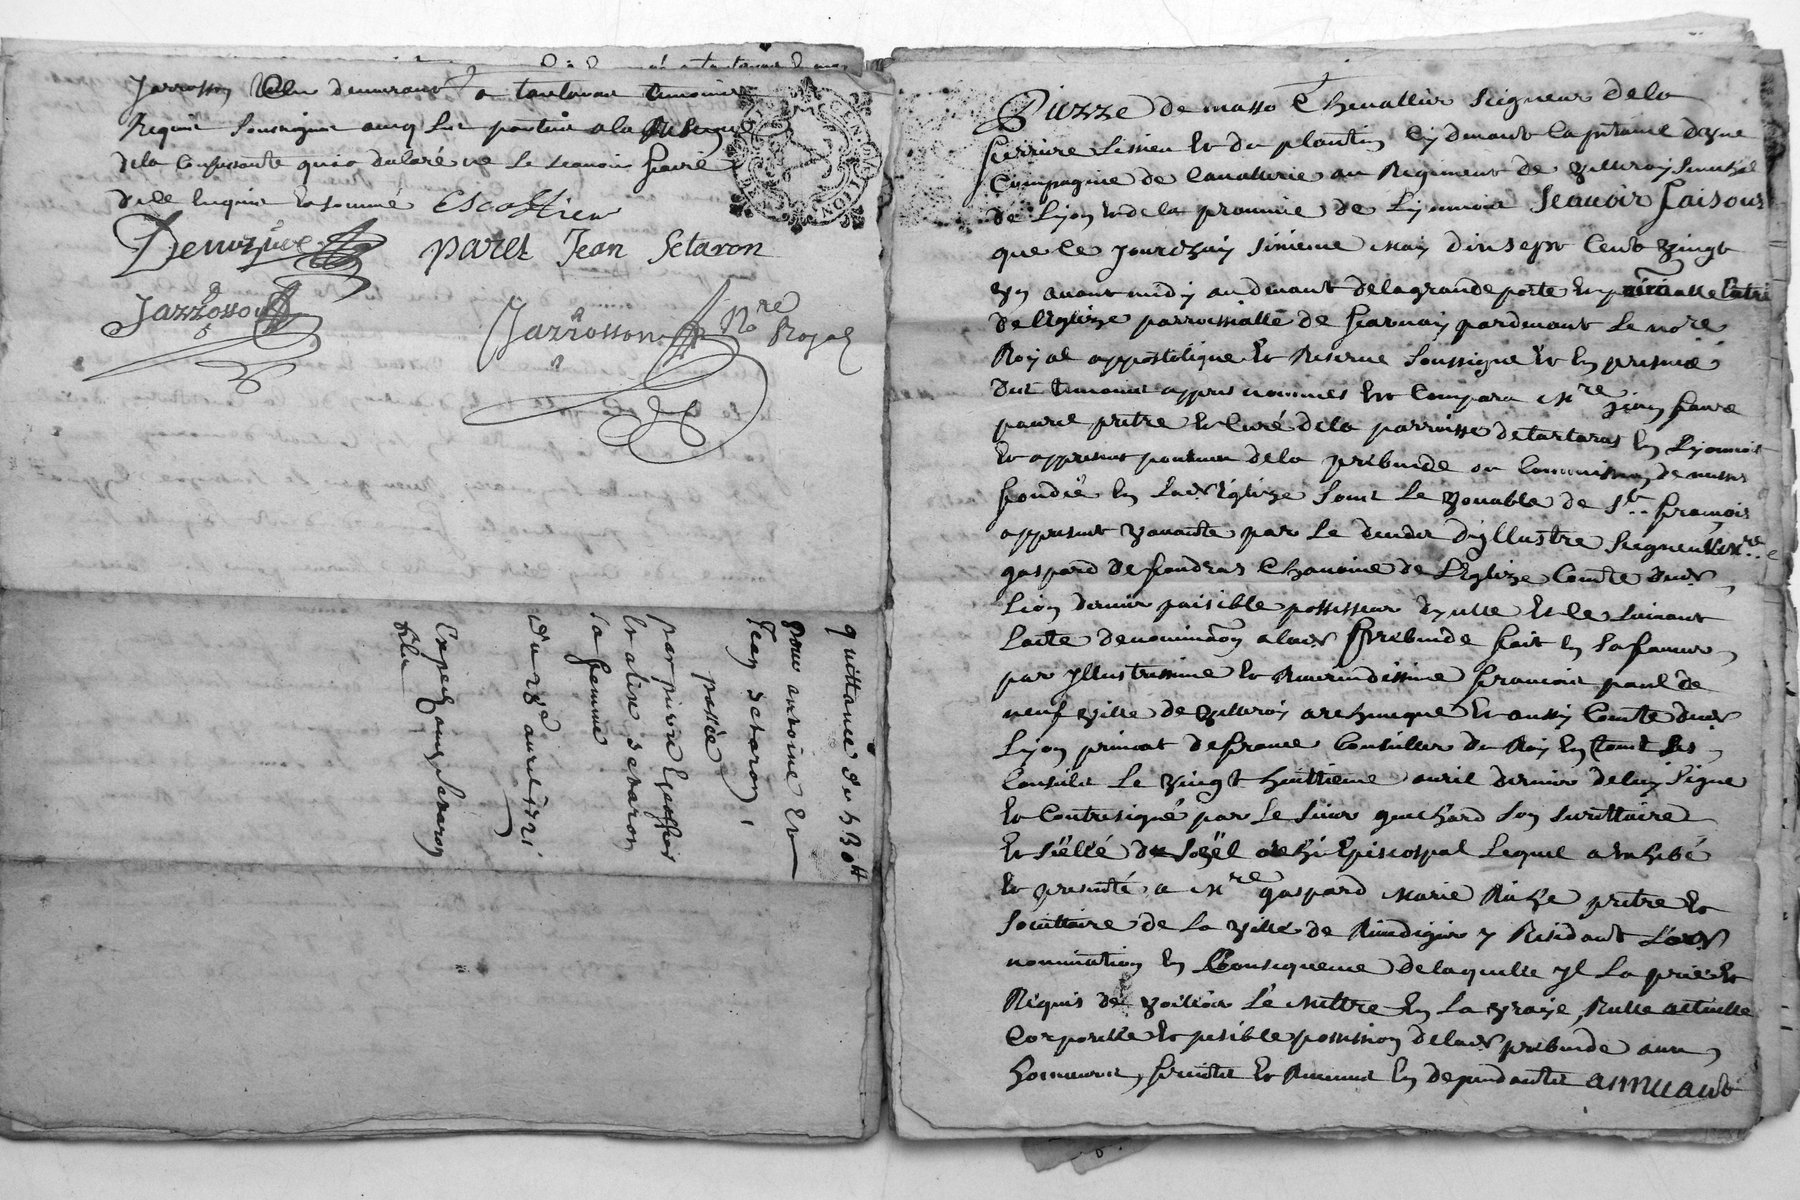 Jarrosson demurant a tartaras temoins
Requis soussignes avec les parties a la Reserve
de la Confessante qui a declaré ne le scavoir faire
de ce Enquise et sommé Escoffier
Denuziere paret Jean Setaron
Jarrosson Jarrosson Nre Royal
quittance de 430#
pour antoine Et
Jean Setaron
passée
par pierre Escoffier
Et alix Setaron
sa femme
du 28e avril 1721
Expedié aux Setaron
Pierre de masso Chevallier Seigneur de la
ferriere Lissieu Et du plantin Cy devant Capitaine dune
Compagnie de Cavallerie au Regiment de Villeroy Senechal
de Lyon Et de la province de Lyonnois Scavoir faisons
que Ce Jourdhuy sixieme may dix sept Cent Vingt
Un avant midy au devant de la grande porte et principalle Entrée
de l'Eglize parroissialle de farnay pardevant Le nore
Royal appostolique Et Reservé soussigne Et En presence
des temoins appres nommes Est Comparu Mre Jean faure
prêtre Et Curé de la parroisse de tartaras En Lyonnois
Et appresent pourveu de la prebende ou Commission de messes
fondée En Lad Eglize sous Le Vocable de St francois
appresent Vacante par Le deceder d'illustre Seigneur Mre
gaspard de fondras Chanoine de L'Eglize Comte dud
Lion dernier paisible possesseur dycelle Et Ce suivant
Lacte de nominaon a lad prebende fait En sa faveur
par Illustrissime Et Reverendissime francois paul de
neuf Ville de Villeroy archeveque Et aussy Comte dud
Lyon primat de france Conseiller du Roy En tous Ses
Conseils Le Vingt huittieme avril dernier de luy Signe
Et Contresigné par Le Sieur guichard Son Secrettaire
Et Séellé du Scéel archi Episcopal Lequel a Exhibé
Et presenté a Mre gaspard marie Riche prêtre Et
Societtaire de La Ville de Rivedegier y Residant Lad
nomination En Consequence de laquelle yl La prié Et
Requis de Voulloir Le mettre En La Vraye Reelle actuelle
Corporelle Et pesible possession de lad prebende aux
honneurs, fruits Et Revenus En dependantes annuant